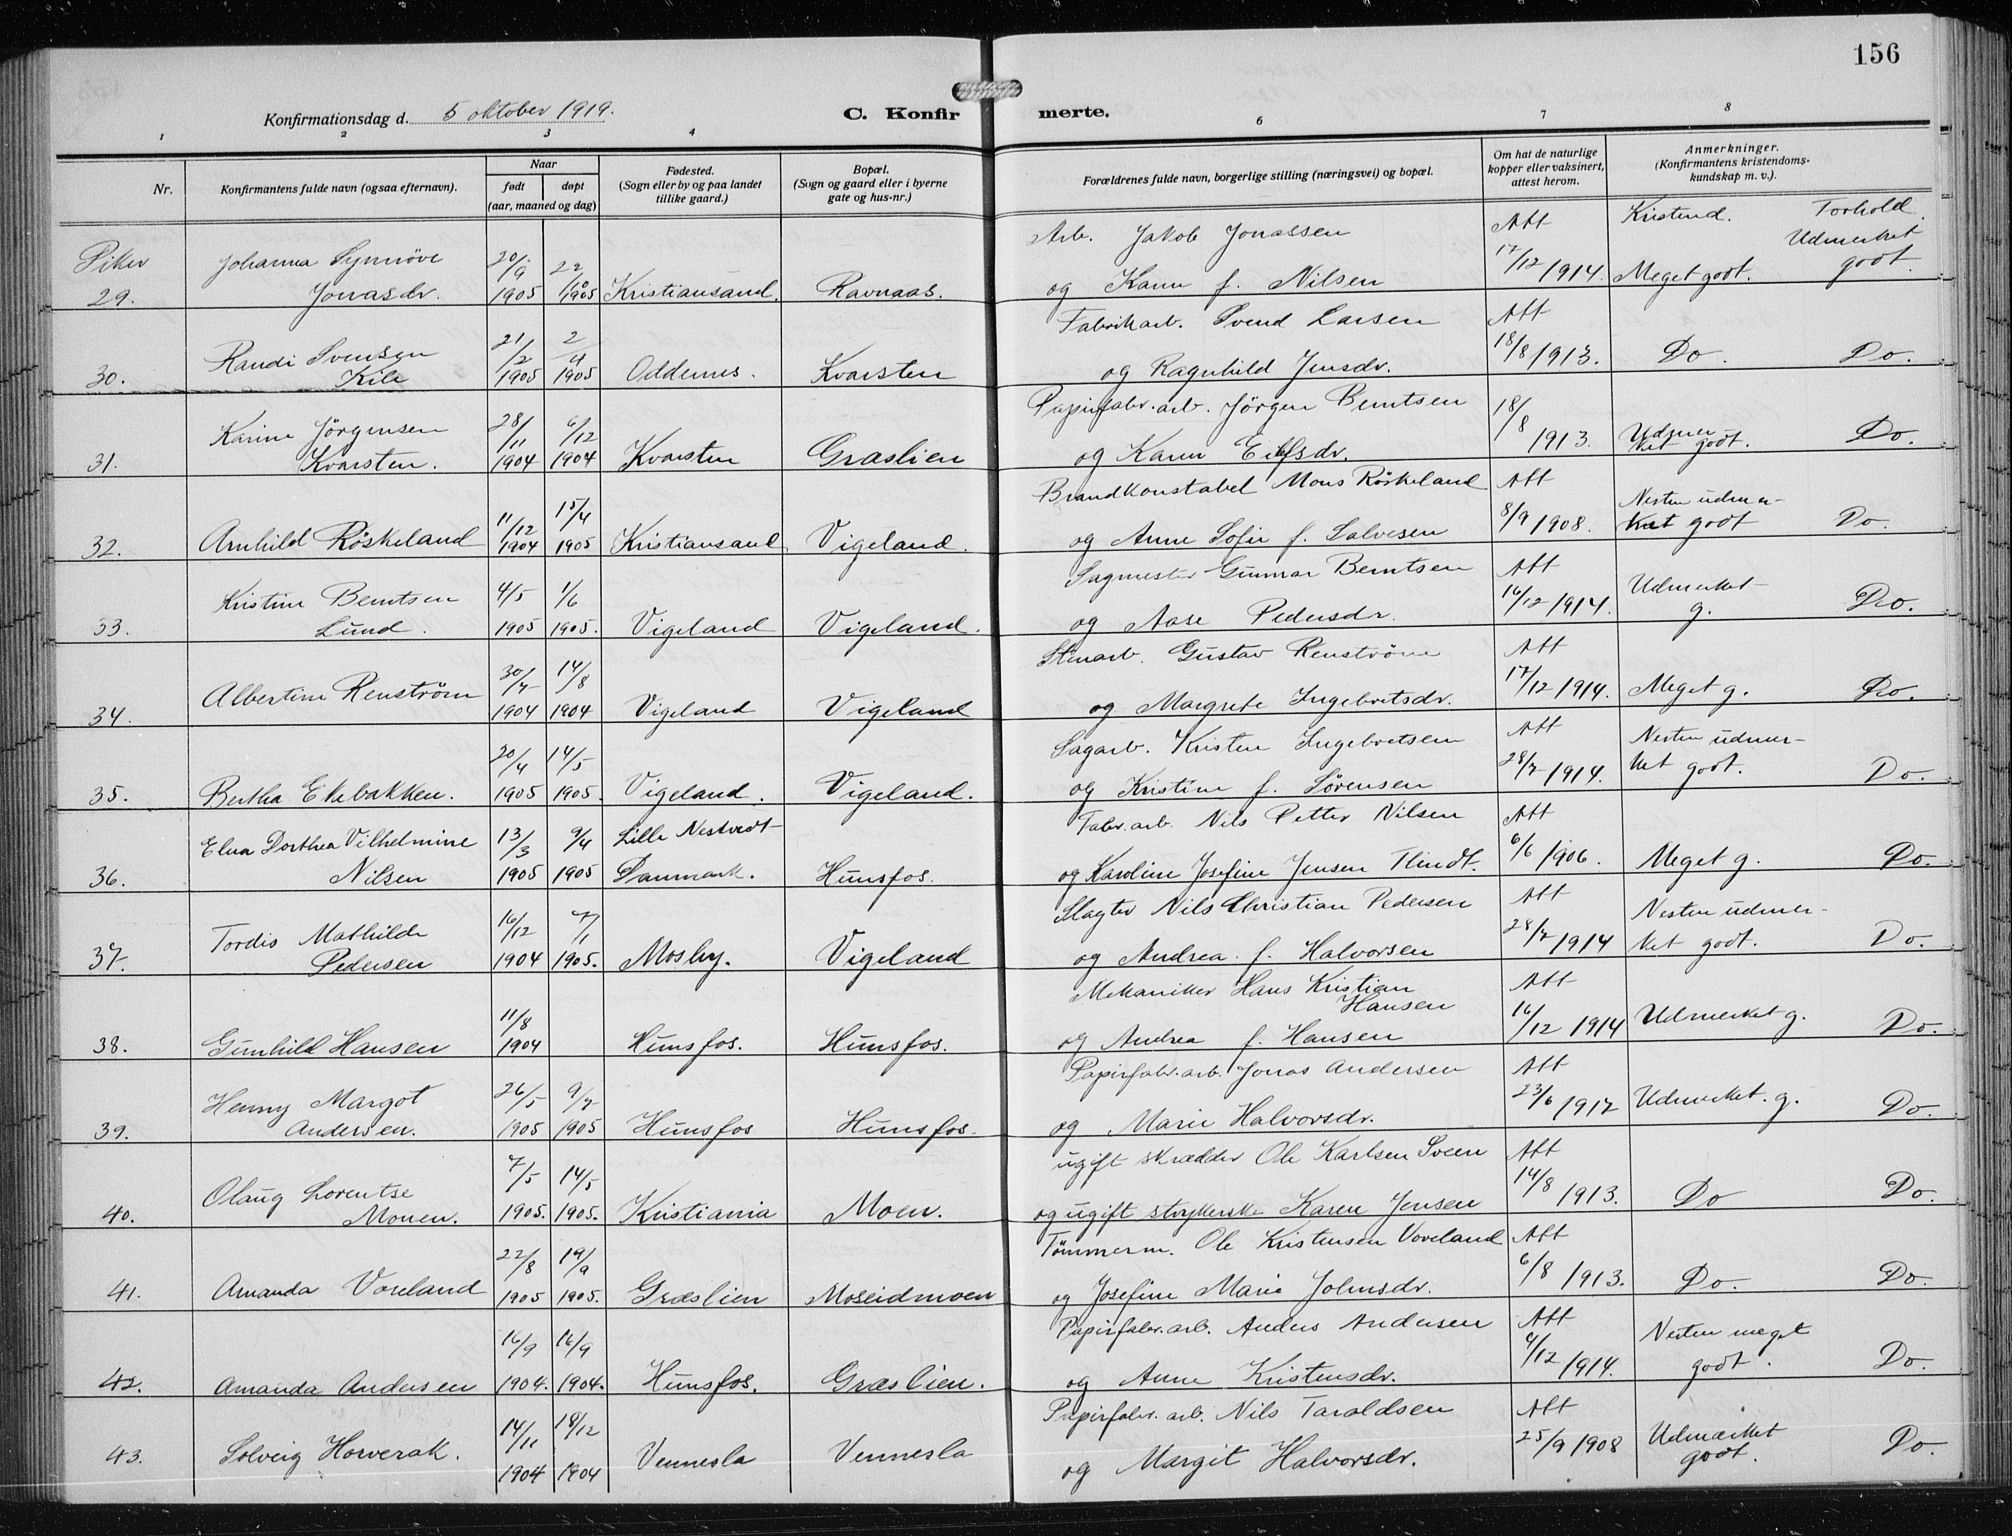 156
Konfirmationsdag d. 5 oktober 1919.
C. Konfirmerte.
1 2 3 4 5 6 7 8
Nr.
Konfirmantens fulde navn (ogsaa efternavn).
Naar
født
døpt
(aar, maaned og dag)
Fødested.
(Sogn eller by og paa landet
tillike gaard.)
Bopæl.
(Sogn og gaard eller i byerne
gate og hus-nr.)
Forældrenes fulde navn, borgerlige stilling (næringsvei) og bopæl.
Om hat de naturlige
kopper eller vaksinert,
attest herom.
Anmerkninger.
(Konfirmantens kristendoms-
kundskap m. v.).
Kristend. Forhold.
Piker
29. Johanna Synnöve Jonasdr. 20/9 1905 22/10 1905 Kristiansand. Ravnaas. Arb. Jakob Jonassen og Karen f. Nilsen Att 17/12 1914. Meget godt. Udmerket godt.
30. Randi Svensen Kile 21/2 1905 2/4 1905 Oddernes. Kvarsten Fabrikarb. Svend Larsen og Ragnhild Jensdr. Att 18/8 1913. Do. Do.
31. Karine Jörgensen Kvarsten. 28/11 1904 6/12 1904 Kvarsten Graslien Papirfabr. arb. Jörgen Berntsen og Karen Eilfsdr. 18/8 1913. Udmer-ket godt. Do.
32. Arnhild Röskeland 11/12 1904 15/4 1905 Kristiansand Vigeland. Brandkonstabel Mons Röskeland og Anne Sofie f. Salvesen Att 8/9 1908. Nesten udmer-ket godt Do.
33. Kristine Berntsen Lund. 4/5 1905 1/6 1905. Vigeland Vigeland. Sagmester Gunnar Berntsen og Aase Pedersdr. Att 16/12 1914. Udmerket g. Do.
34. Albertine Renström 30/7 1904 14/8 1904 Vigeland Vigeland Stenarb. Gustav Renströme og Margrete Ingebretsdr. Att 17/12 1914. Meget g. Do.
35. Bertha Ekebakken. 20/4 1905 14/5 1905. Vigeland. Vigeland. Sagarb. Kristen Ingebretsen og Kristine f. Sørensen Att 28/7 1914. Nesten udmer-ket godt. Do.
36. Elna Dorthea Vilhelmine Nilsen 13/3 1905 9/4 1905 Lille Nestvedt Danmark. Hunsfos. Fabr. arb. Nils Petter Nilsen og Karoline Josefine Jensen Flindt. Att 6/6 1906. Meget g. Do.
37. Tordis Mathilde Pedersen 16/12 1904 7/1 1905. Mosby. Vigeland Slagter Nils Christian Pedersen og Andrea f. Halvorsen Att 28/7 1914 Nesten udmer-ket godt. Do.
38. Gunhild Hansen 11/8 1904 Hunsfos. Hunsfos. Mekaniker Hans Kristian Hansen og Andrea f. Hansen Att 16/12 1914 Udmerket g. Do.
39. Henny Margot Andersen. 26/5 1905 9/7 1905 Hunsfos Hunsfos. Papirfabr. arb. Jonas Andersen og Marie Halvorsdr. Att 23/6 1912 Udmerket. g. Do.
40. Olaug Lorentse Monen. 7/5 1905. 14/5 1905. Kristiania Moen. ugift skrædder Ole Karlsen Sveen og ugift strykerske Karen Jensen Att 14/8 1913. Do Do.
41. Amanda Voreland 22/8 1905 19/9 1905. Græslien Moseidmoen Tømmerm. Ole Kristensen Voreland og Josefine Marie Johnsdr. Att 6/8 1913. Do. Do.
42. Amanda Andersen 16/9 1904. 16/9 1904. Hunsfos. Græslien. Papirfabr. arb. Anders Andersen og Anne Kristensdr. Att 4/12 1914. Nesten meget godt. Do.
43. Solveig Horverak. 14/11 1904 18/12 1904 Vennesla Vennesla Papirfabr. arb. Nils Taraldsen og Margit Halvorsdr. Att 25/9 1908 Udmærket godt. Do.